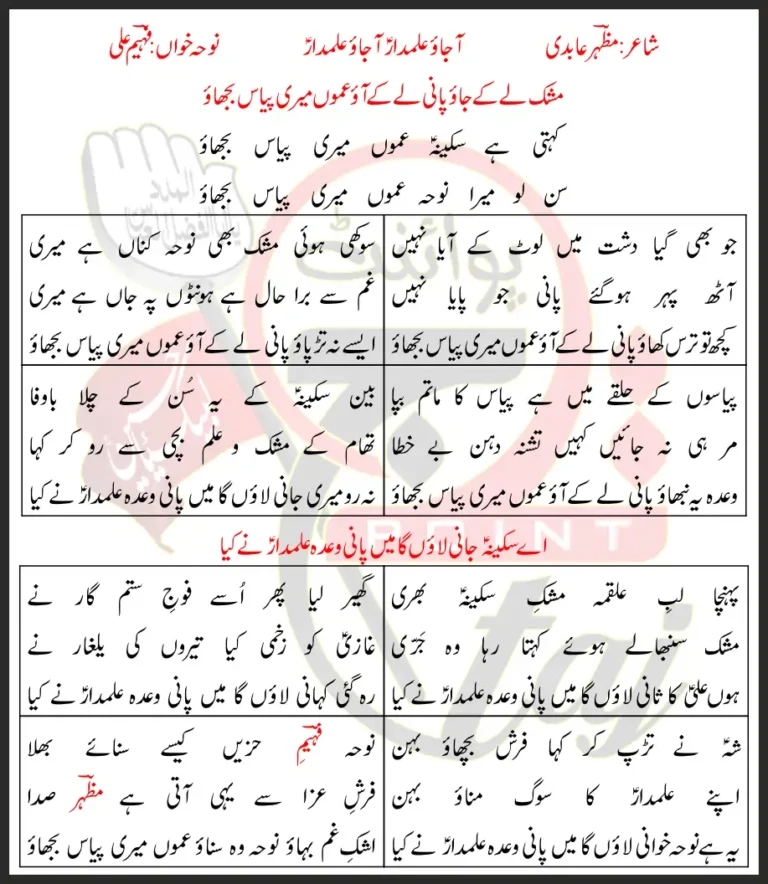 شاعر: مظہر عابدی آجاؤ علمدارؑ آجاؤ علمدارؑ نوحہ خواں: فہیم علی
مشک لے کے جاؤ پانی لے کے آؤ عموں میری پیاس بجھاؤ
کہتی ہے سکینہؑ عموں میری پیاس بجھاؤ
سن لو میرا نوحہ عموں میری پیاس بجھاؤ
جو بھی گیا دشت میں لوٹ کے آیا نہیں
آٹھ پہر ہوگئے پانی جو پایا نہیں
کچھ تو ترس کھاؤ پانی لے کے آؤ عموں میری پیاس بجھاؤ
سوکھی ہوئی مشک بھی نوحہ کناں ہے میری
غم سے برا حال ہے ہونٹوں پہ جاں ہے میری
ایسے نہ تڑپاؤ پانی لے کے آؤ عموں میری پیاس بجھاؤ
پیاسوں کے حلقے میں ہے پیاس کا ماتم بپا
مر ہی نہ جائیں کہیں تشنہ دہن بے خطا
وعدہ یہ نبھاؤ پانی لے کے آؤ عموں میری پیاس بجھاؤ
بین سکینہؑ کے یہ سُن کے چلا باوفا
تھام کے مشک و علم بچی سے رو کر کہا
نہ رو میری جانی لاؤں گا میں پانی وعدہ علمدارؑ نے کیا
اے سکینہؑ جانی لاؤں گا میں پانی وعدہ علمدارؑ نے کیا
پہنچا لبِ علقمہ مشکِ سکینہؑ بھری
مشک سنبھالے ہوئے کہتا رہا وہ جَرّی
ہوں علیؑ کا ثانی لاؤں گا میں پانی وعدہ علمدارؑ نے کیا
گھیر لیا پھر اُسے فوجِ ستم گار نے
غازیؑ کو زخمی کیا تیروں کی یلغار نے
رہ گئی کہانی لاؤں گا میں پانی وعدہ علمدارؑ نے کیا
شہؑ نے تڑپ کر کہا فرش بچھاؤ بہن
اپنے علمدارؑ کا سوگ مناؤ بہن
یہ ہے نوحہ خوانی لاؤں گا میں پانی وعدہ علمدارؑ نے کیا
نوحہ فہیمِ حزیں کیسے سنائے بھلا
فرشِ عزا سے یہی آتی ہے مظہر صدا
اشکِ غم بہاؤ نوحہ وہ سناؤ عموں میری پیاس بجھاؤ
پوائنٹ
POINT
taj